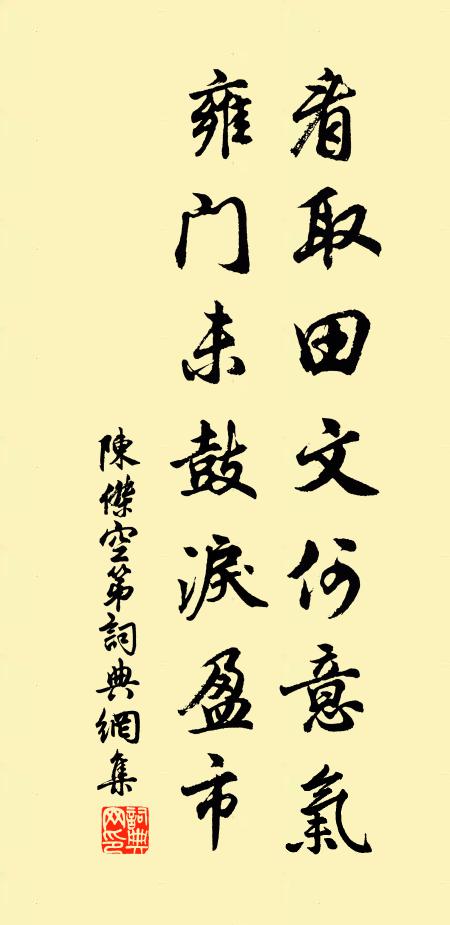 看取田文何意氣
雍門未鼓淚盈市
陳傑空第詞典網集
詞典網印